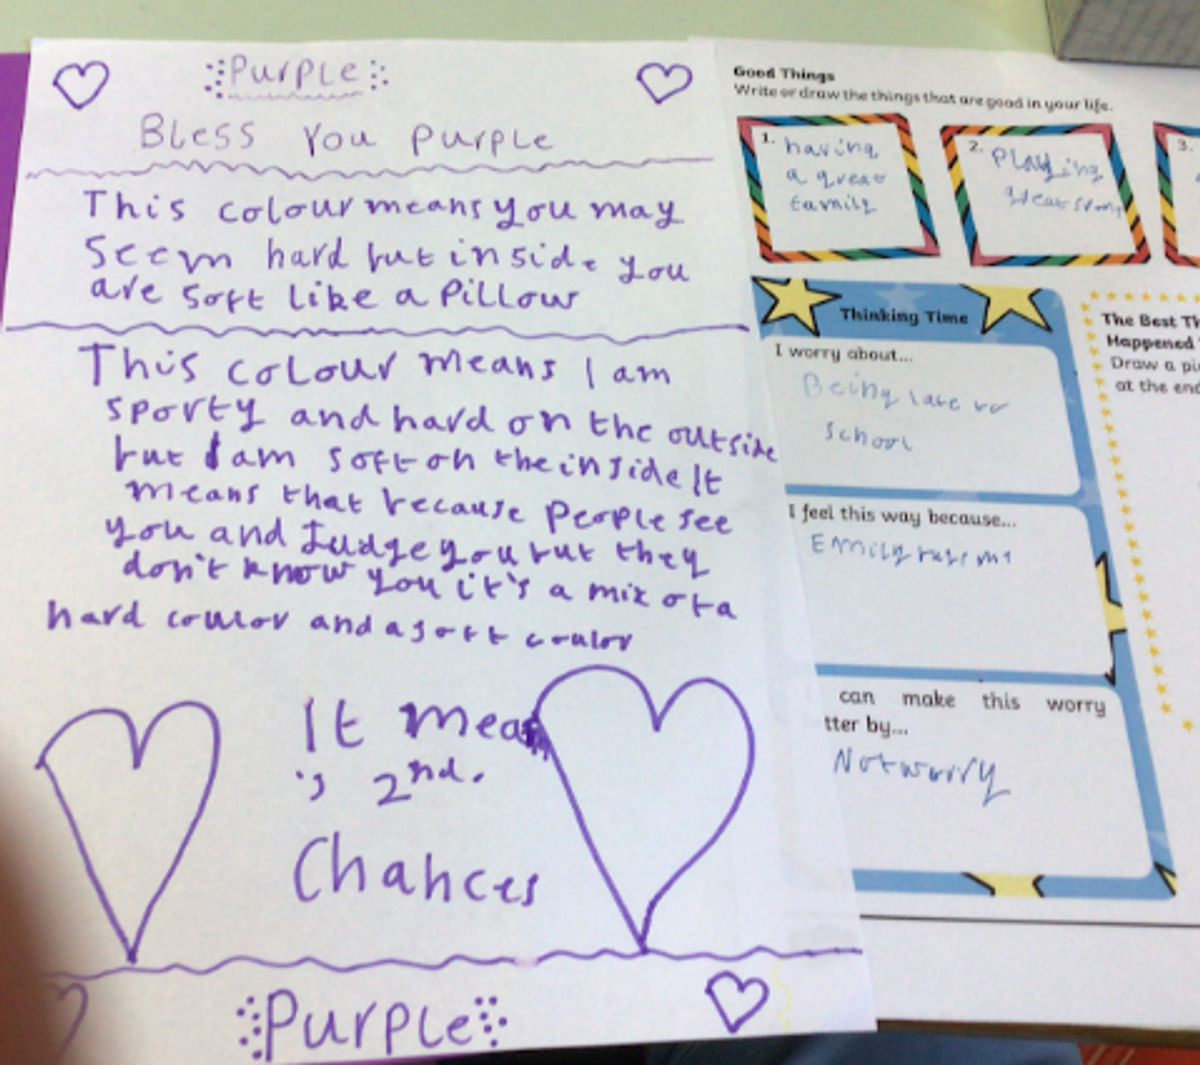 Purple
Bless You Purple
This colour means you may
seem hard but inside you
are soft like a Pillow
This colour means I am
sporty and hard on the outside
but I am soft on the inside It
means that because people see
you and Judge you but they
don't know you it's a mix of a
hard coulor and a soft coulor
It mean
's 2nd.
Chances
Purple
Good Things
Write or draw the things that are good in your life.
1. having
a great
family
2. Playing
3.
Thinking Time
I worry about...
Being late to
school
I feel this way because...
Emily
can make this worry
tter by...
Not worry
The Best Th
Happened
Draw a pi
at the end